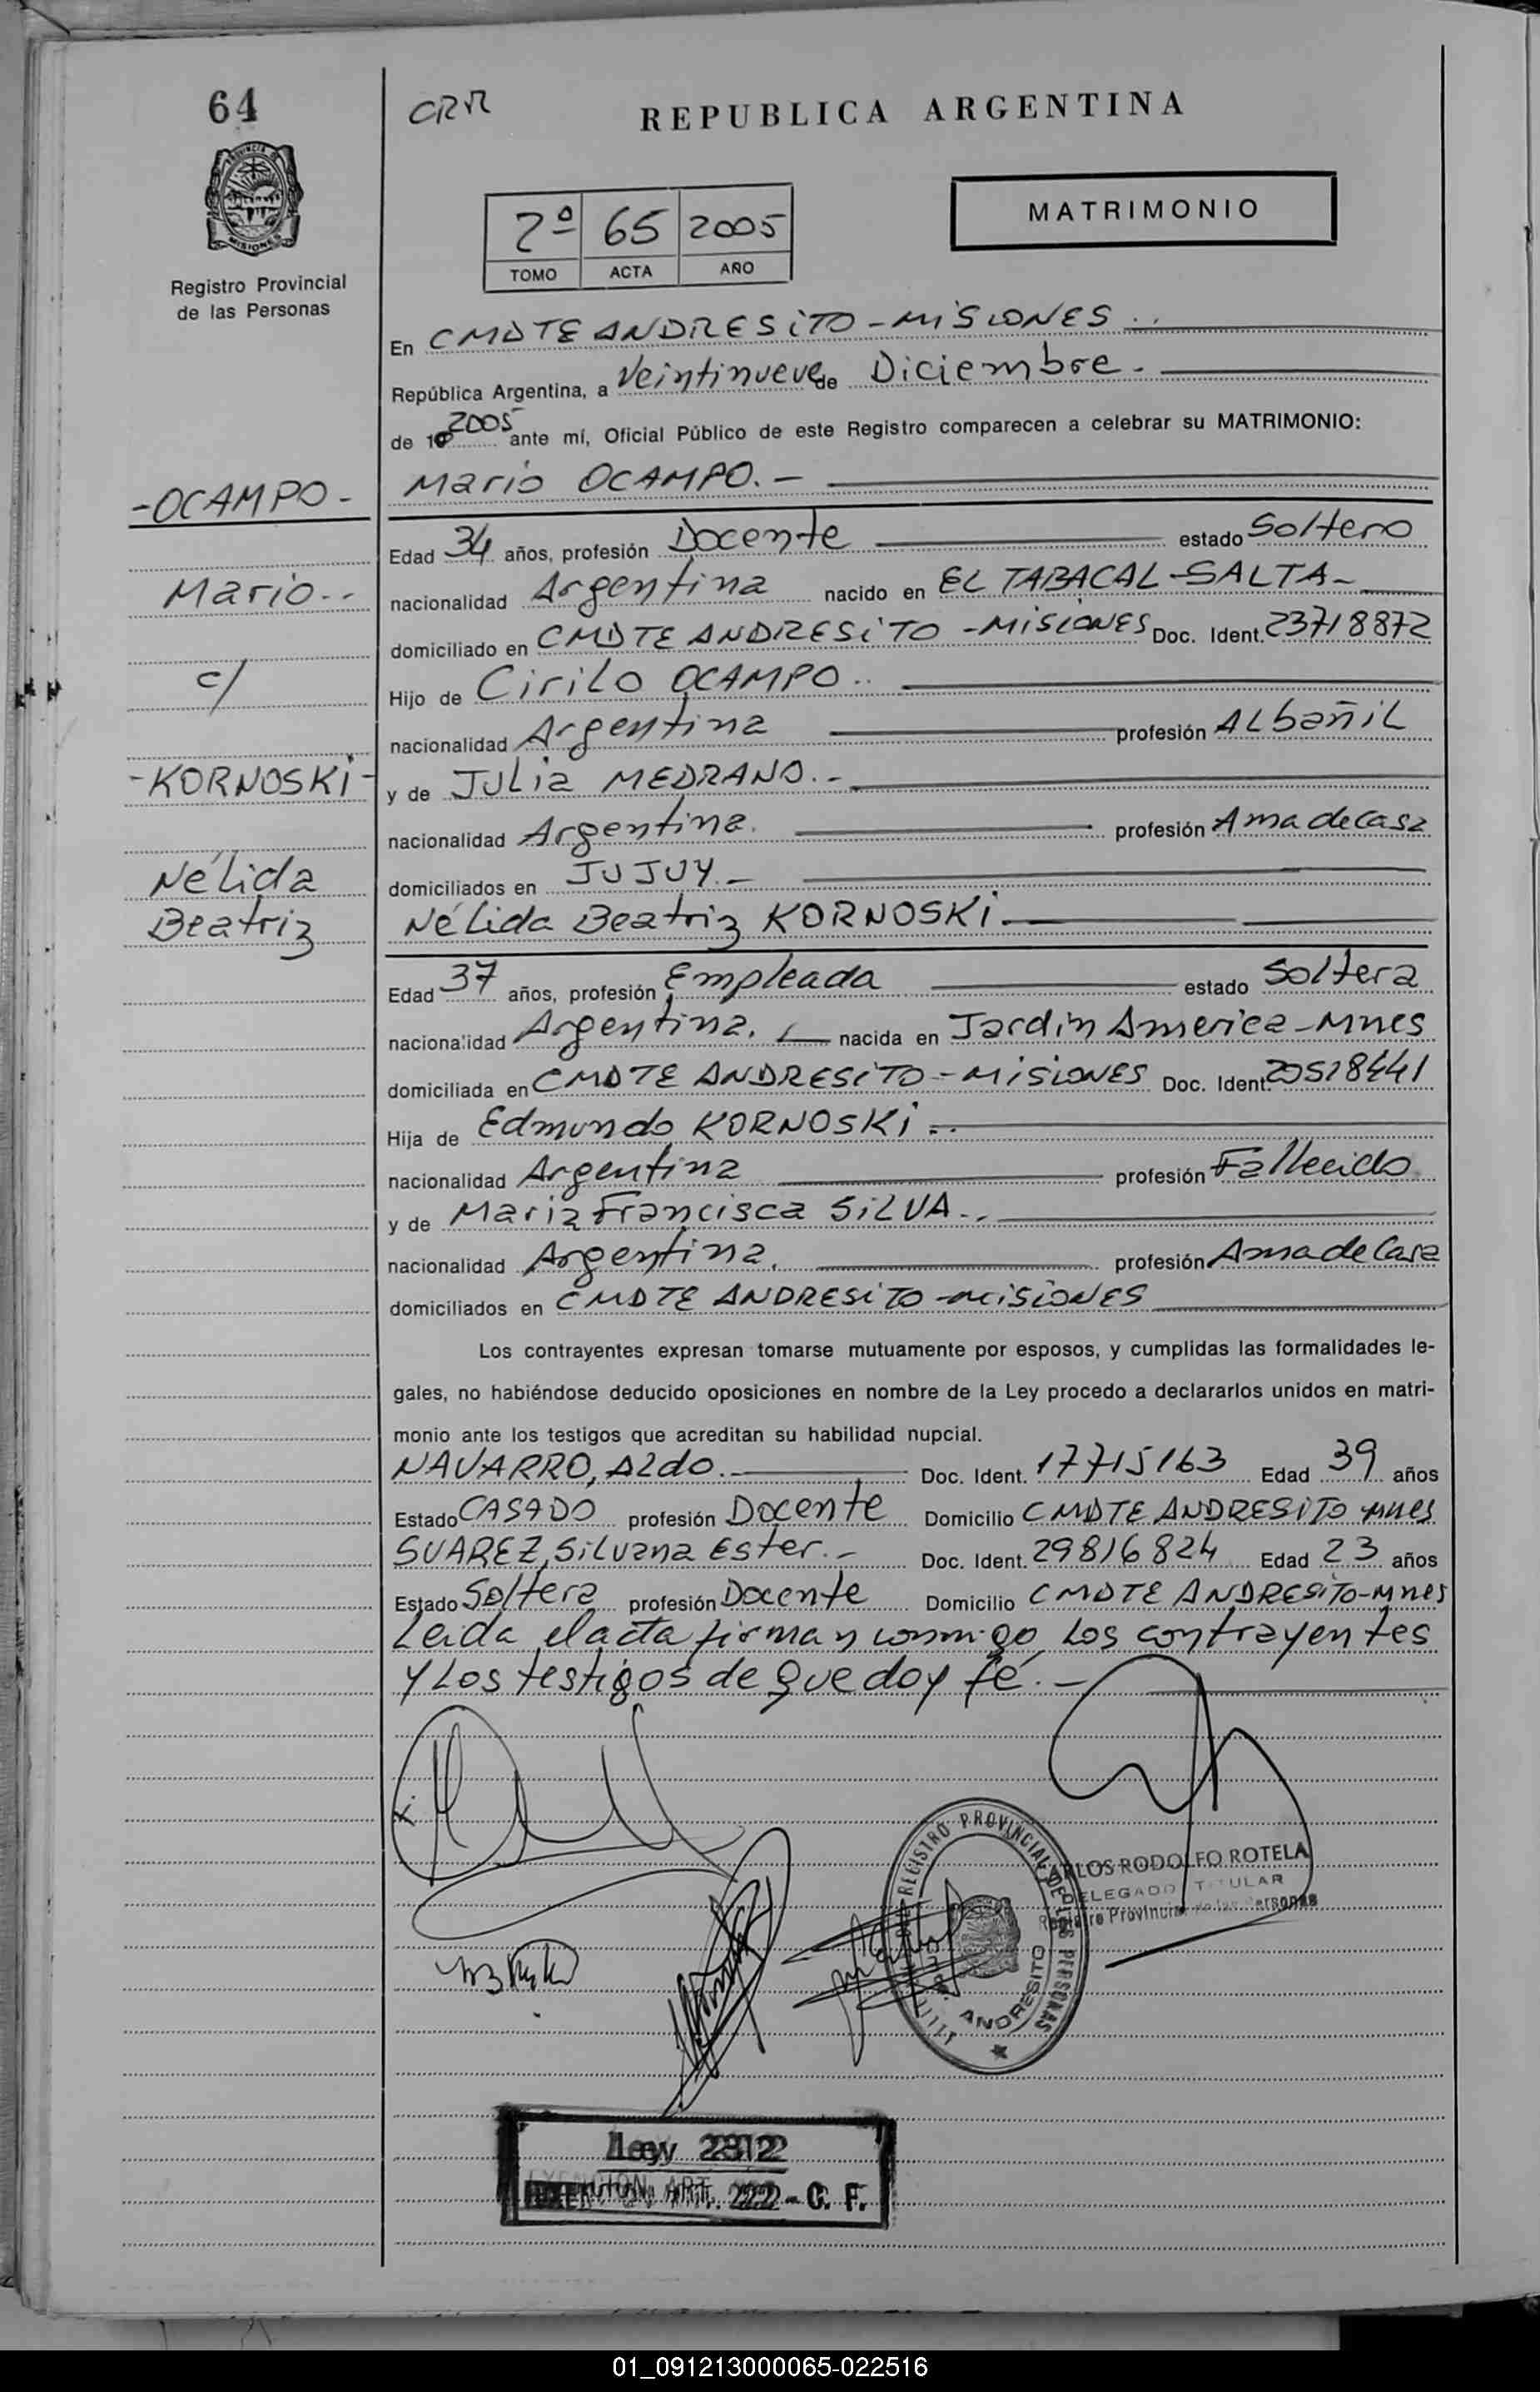 64
CRR
REPUBLICA ARGENTINA
PROVINCIA DE
MISIONES
Registro Provincial
de las Personas
2º 65 2005
TOMO ACTA AÑO
MATRIMONIO
En CMDTE ANDRESITO - MISIONES
República Argentina, a Veintinueve de Diciembre.
de 2005 ante mí, Oficial Público de este Registro comparecen a celebrar su MATRIMONIO:
-OCAMPO-
Mario OCAMPO.-
Edad 34 años, profesión Docente estado Soltero
Mario..
nacionalidad Argentina nacido en EL TABACAL-SALTA-
domiciliado en CMDTE ANDRESITO - MISIONES Doc. Ident. 23718872
c/
Hijo de Cirilo OCAMPO..
nacionalidad Argentina profesión ALbañiL
-KORNOSKi-
y de JULia MEDRANO.-
nacionalidad Argentina. profesión Ama de casa
NéLida
domiciliados en JUJUY.-
Beatriz
NéLida Beatriz KORNOSKi.
Edad 37 años, profesión Empleada estado Soltera
nacionalidad Argentina. nacida en Jardín America-Mnes
domiciliada en CMDTE ANDRESITO - MISIONES Doc. Ident. 20518441
Hija de Edmundo KORNOSKi..
nacionalidad Argentina profesión Fallecido
y de Maria Francisca SiLVA..
nacionalidad Argentina. profesión Ama de Casa
domiciliados en CMDTE ANDRESITO - MISIONES
Los contrayentes expresan tomarse mutuamente por esposos, y cumplidas las formalidades le-
gales, no habiéndose deducido oposiciones en nombre de la Ley procedo a declararlos unidos en matri-
monio ante los testigos que acreditan su habilidad nupcial.
NAVARRO, Aldo. Doc. Ident. 17715163 Edad 39 años
Estado CASADO profesión Docente Domicilio CMDTE ANDRESITO Mnes
SUAREZ, SiLvana Ester.- Doc. Ident. 29816824 Edad 23 años
Estado Soltera profesión Docente Domicilio CMDTE ANDRESITO-Mnes
Leida el acta firman conmigo Los contrayentes
y Los testigos de que doy fé.-
REGISTRO PROVINCIAL DE LAS PERSONAS
ANDRESITO
CARLOS RODOLFO ROTELA
DELEGADO TITULAR
Registro Provincial de las Personas
Ley 2312
EXENCION ART. 222 - C. F.
01_091213000065-022516